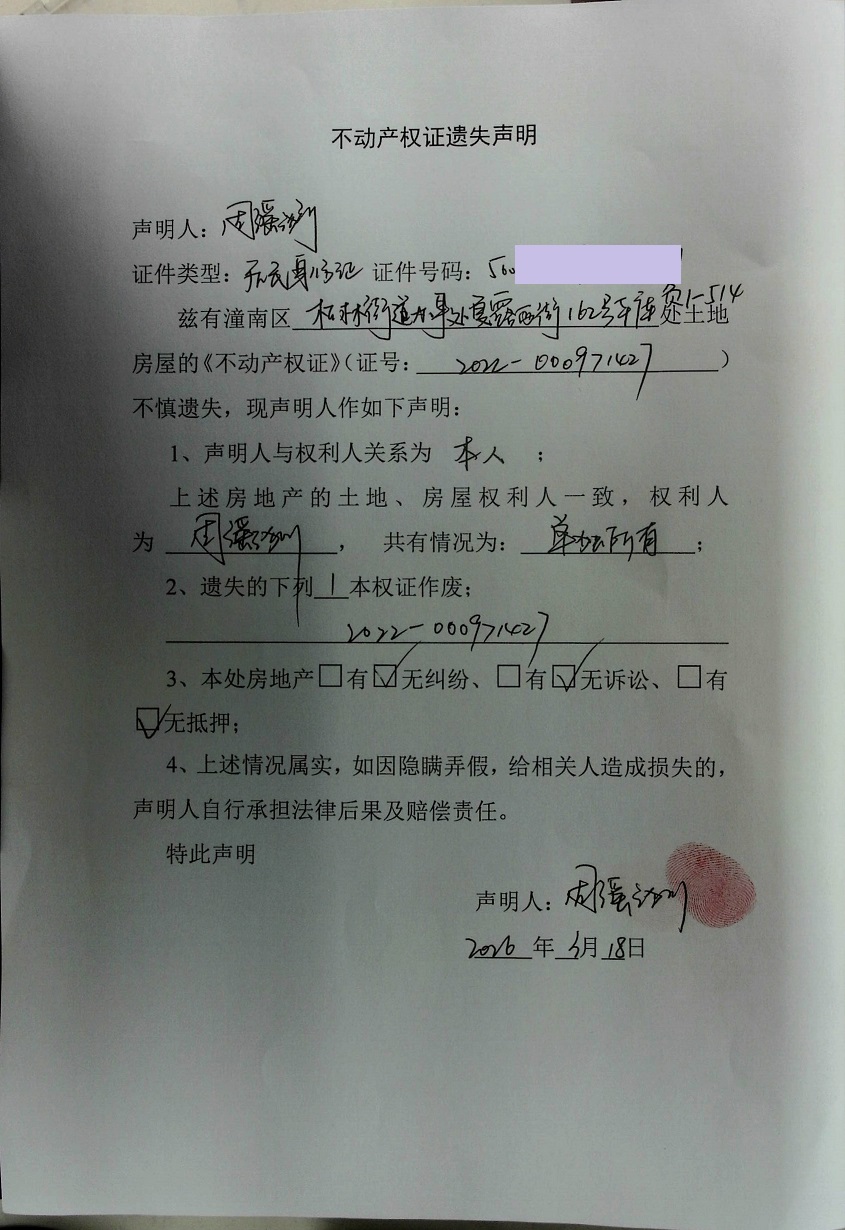 不动产权证遗失声明
声明人：周
证件类型：居民身份证 证件号码：500
兹有潼南区 桂林街道办事处夏露西街162号车库负1-514 处土地
房屋的《不动产权证》（证号：2022-000971427）
不慎遗失，现声明人作如下声明：
1、声明人与权利人关系为 本人 ；
上述房地产的土地、房屋权利人一致，权利人
为 周 ， 共有情况为： 单独所有 ；
2、遗失的下列 1 本权证作废；
2022-000971427
3、本处房地产□有☑无纠纷、□有☑无诉讼、□有
☑无抵押；
4、上述情况属实，如因隐瞒弄假，给相关人造成损失的，
声明人自行承担法律后果及赔偿责任。
特此声明
声明人：周
2026 年 月 18日